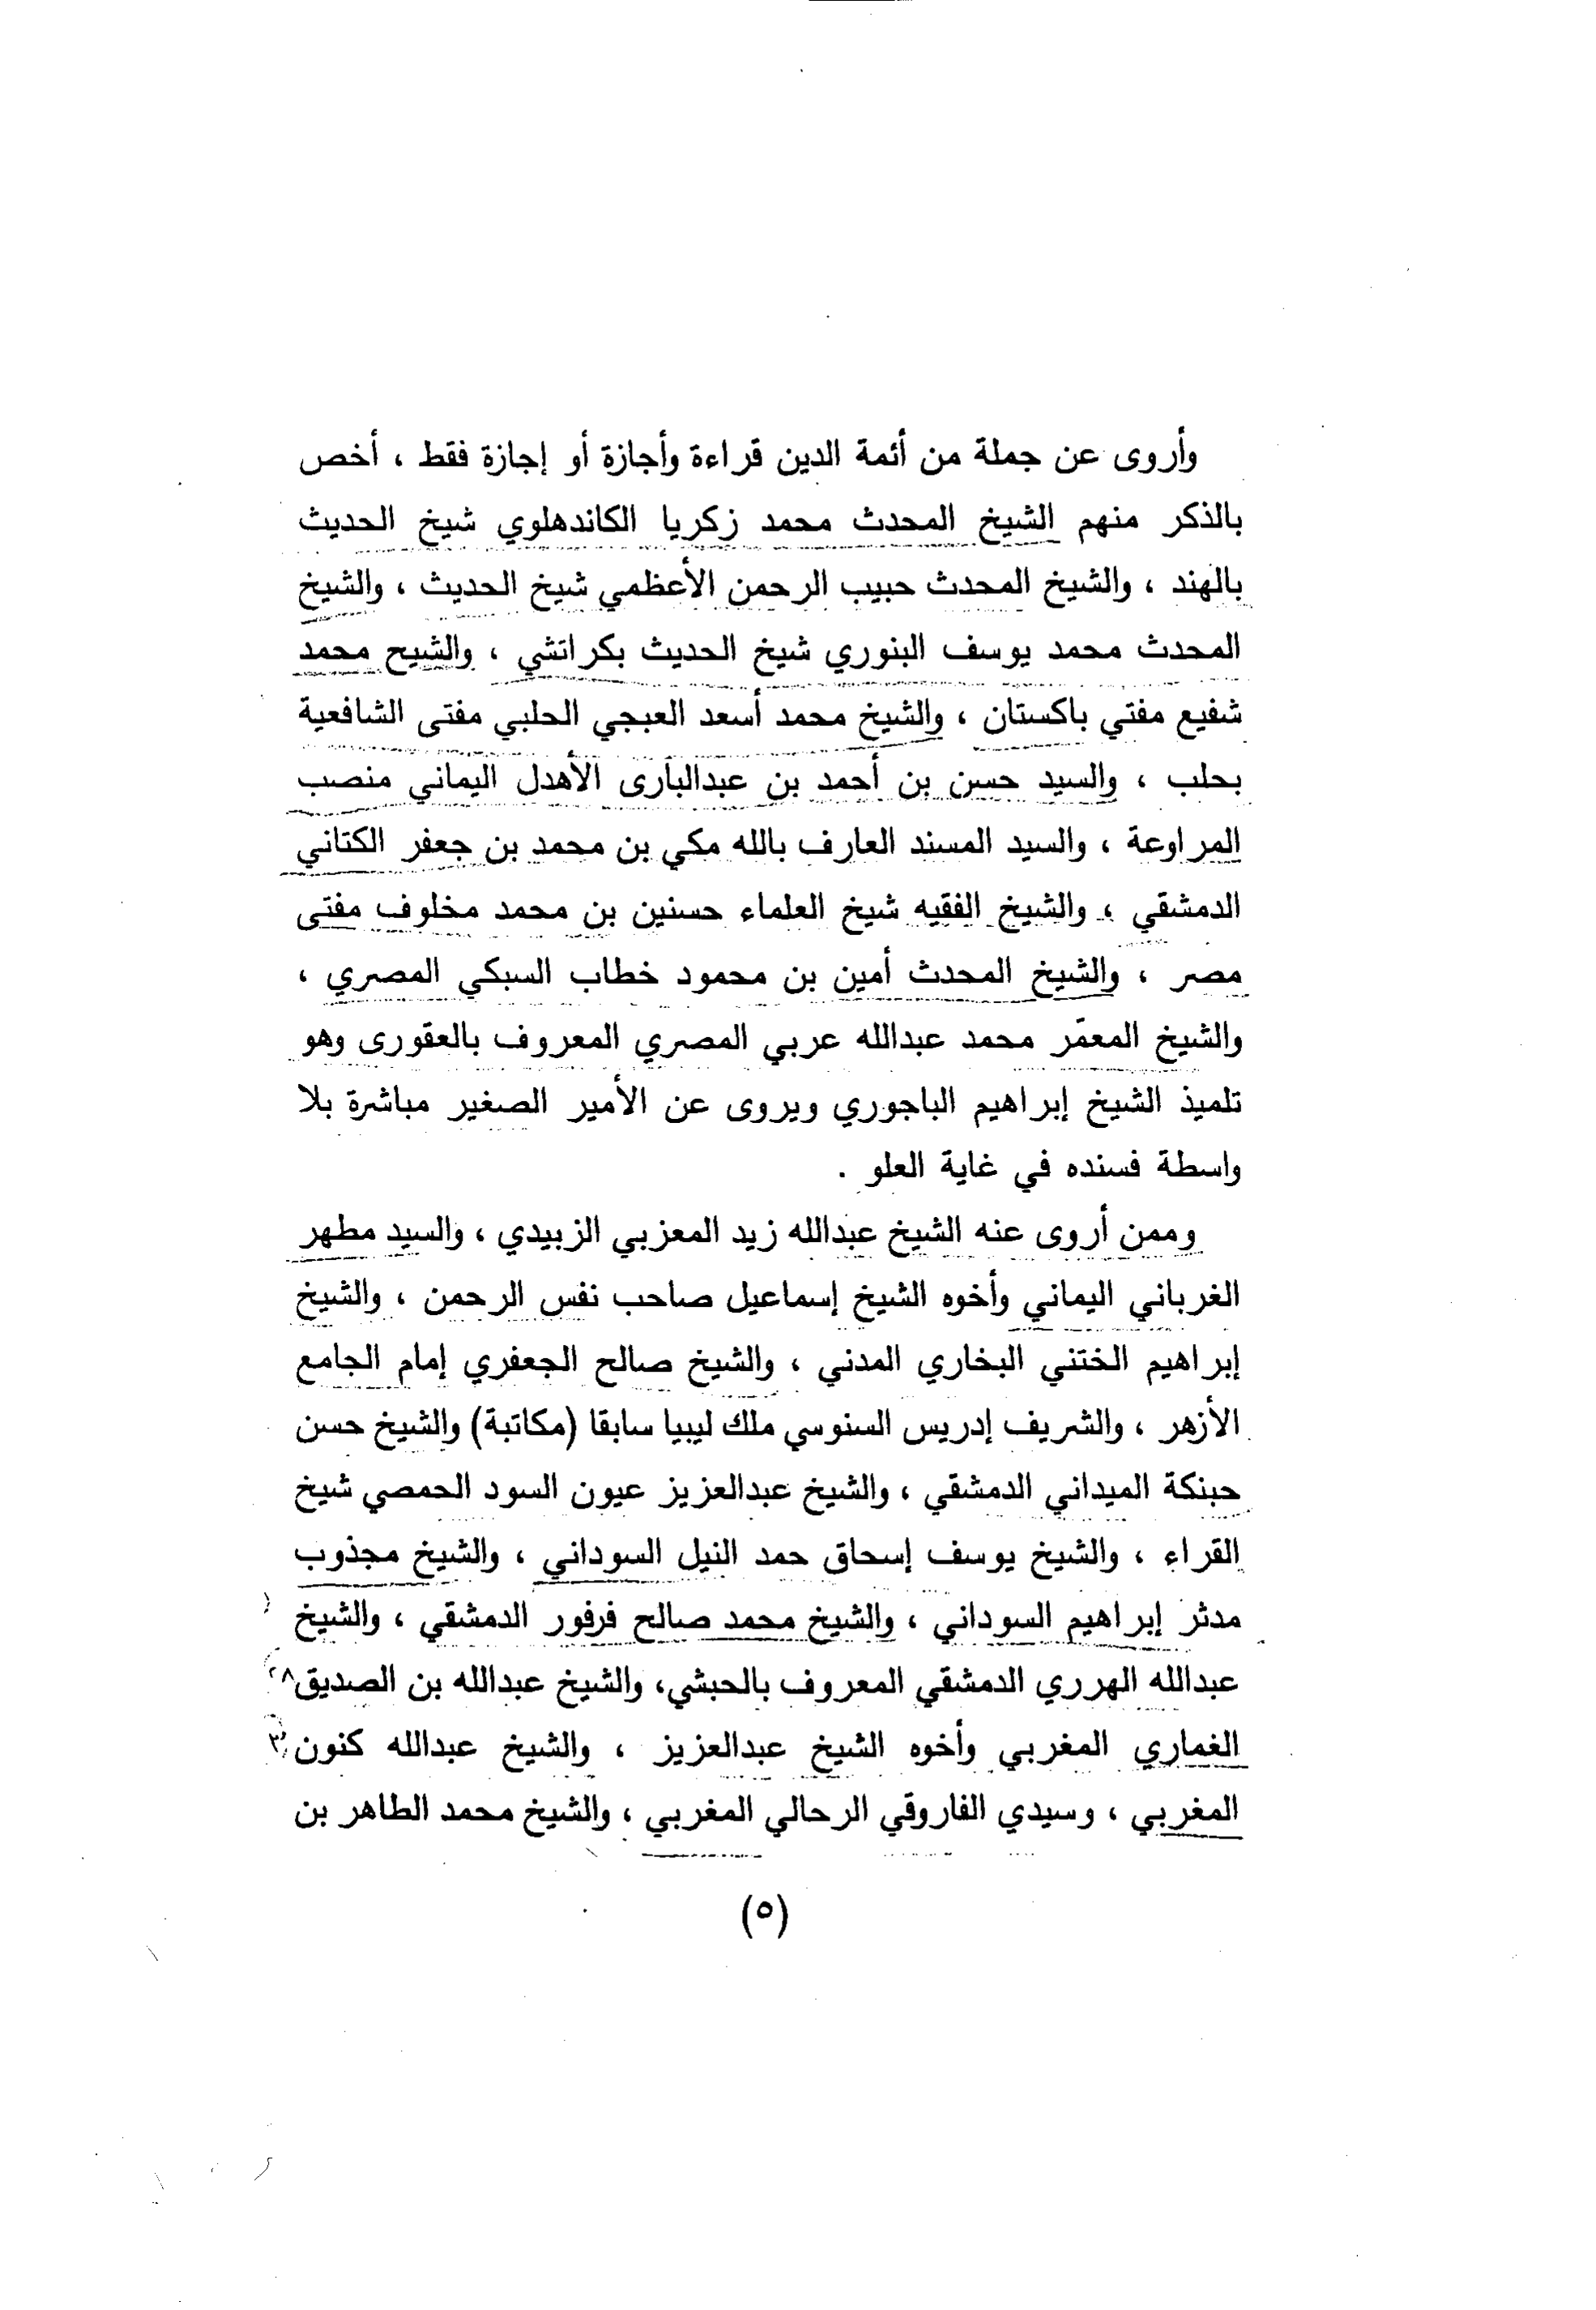 وأروى عن جملة من أئمة الدين قراءة وأجازة أو إجازة فقط ، أخص
بالذكر منهم الشيخ المحدث محمد زكريا الكاندهلوي شيخ الحديث
بالهند ، والشيخ المحدث حبيب الرحمن الأعظمي شيخ الحديث ، والشيخ
المحدث محمد يوسف البنوري شيخ الحديث بكراتشي ، والشيح محمد
شفيع مفتي باكستان ، والشيخ محمد أسعد العبجي الحلبي مفتى الشافعية
بحلب ، والسيد حسن بن أحمد بن عبدالبارى الأهدل اليماني منصب
المراوعة ، والسيد المسند العارف بالله مكي بن محمد بن جعفر الكتاني
الدمشقي ، والشيخ الفقيه شيخ العلماء حسنين بن محمد مخلوف مفتى
مصر ، والشيخ المحدث أمين بن محمود خطاب السبكي المصري ،
والشيخ المعمَر محمد عبدالله عربي المصري المعروف بالعقورى وهو
تلميذ الشيخ إبراهيم الباجوري ويروى عن الأمير الصغير مباشرة بلا
واسطة فسنده في غاية العلو .
وممن أروى عنه الشيخ عبدالله زيد المعزبي الزبيدي ، والسيد مطهر
الغرباني اليماني وأخوه الشيخ إسماعيل صاحب نفس الرحمن ، والشيخ
إبراهيم الختني البخاري المدني ، والشيخ صالح الجعفري إمام الجامع
الأزهر ، والشريف إدريس السنوسي ملك ليبيا سابقا (مكاتبة) والشيخ حسن
حبنكة الميداني الدمشقي ، والشيخ عبدالعزيز عيون السود الحمصي شيخ
القراء ، والشيخ يوسف إسحاق حمد النيل السوداني ، والشيخ مجذوب
مدثر إبراهيم السوداني ، والشيخ محمد صالح فرفور الدمشقي ، والشيخ
عبدالله الهرري الدمشقي المعروف بالحبشي، والشيخ عبدالله بن الصديق
الغماري المغربي وأخوه الشيخ عبدالعزيز ، والشيخ عبدالله كنون
المغربي ، وسيدي الفاروقي الرحالي المغربي ، والشيخ محمد الطاهر بن
(٥)